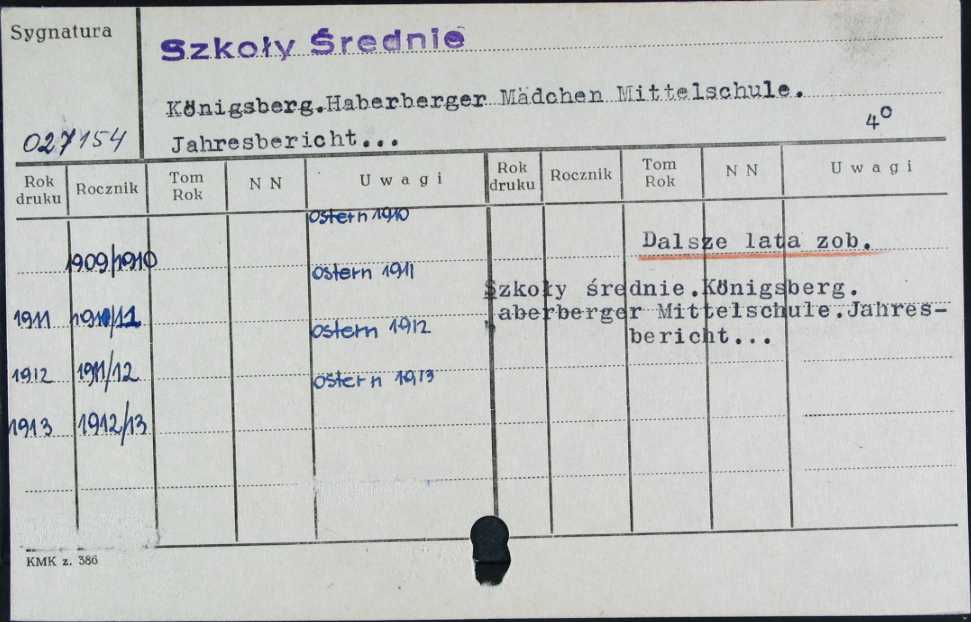 Sygnatura
Szkoły Średnie
Königsberg.Haberberger Mädchen Mittelschule.
4°
027154
Jahresbericht...
Rok druku Rocznik Tom Rok N N Uwagi Rok druku Rocznik Tom Rok N N Uwagi
ostern 1910
1909/1910
Dalsze lata zob.
ostern 1911
Szkoły średnie.Königsberg.
1911 1910/11
aberberger Mittelschule.Jahres-
ostern 1912
bericht...
1912 1911/12
ostern 1913
1913 1912/13
KMK z. 386